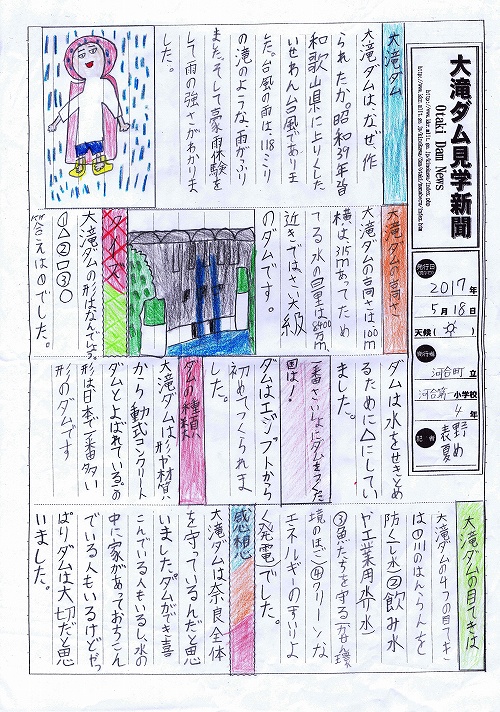 大滝ダム見学新聞
Otaki Dam News
発行日
2017年
5月18日
天候( )
発行者
河合町立
河合第一小学校
4年
記者
大滝ダム
大滝ダムは、なぜ、作
られたか。昭和39年皆
和歌山県に上りくした
いせわん台風でありま
した。台風の雨は、118ミリ
の滝のような雨がふり
ました。そして豪雨体験を
して雨の強さがわかりま
した。
大滝ダムの高さ
大滝ダムの高さは100m
横は、315mあってため
てる水の量は8400万m
近きではさい大級
のダムです。
クイズ
大滝ダムの形はなんでしょう。
①△②□③○
答えは①でした。
ダムは水をせきとめ
るために△にしてい
ました。
一番さいしょにダムをつくった
国は!
ダムはエジプトから
初めてつくられま
した。
ダムの種類
大滝ダムは形や材質
から動式コンクリート
ダムとよばれている。この
形は日本で一番多い
形のダムです
大滝ダムの目てきは
大滝ダムの4つの目てき
は①川のはんらんを
防ぐ(し水)②飲み水
や工業用水(り水)
③魚たちを守る(かん環
境のほご)④クリーンな
エネルギーのきょうきょ
く(発電)でした。
感想
大滝ダムは奈良全体
を守っているんだと思
いました。ダムができ喜
こんでいる人もいるし、水の
中に家があっておちこん
でいる人もいるけどやっ
ぱりダムは大切だと思
いました。